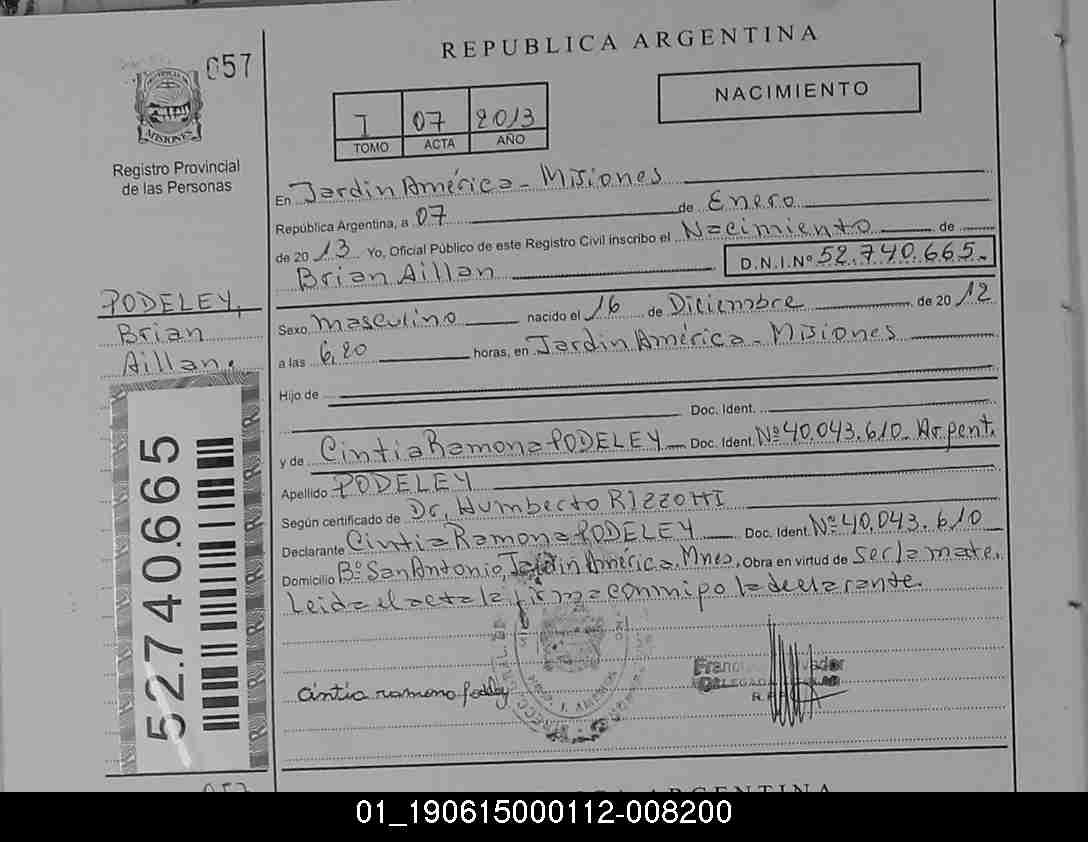 057
MISIONES
Registro Provincial
de las Personas
REPUBLICA ARGENTINA
NACIMIENTO
I 07 2013
TOMO ACTA AÑO
En Jardin América - Misiones
República Argentina, a 07 de Enero
de 20 13 Yo, Oficial Público de este Registro Civil inscribo el Nacimiento de
Brian Aillan D.N.I.Nº 52.740.665.
PODELEY,
Brian
Aillan.
Sexo masculino nacido el 16 de Diciembre de 20 12
a las 6,20 horas, en Jardin América - Misiones
Hijo de
Doc. Ident.
y de Cintia Ramona PODELEY Doc. Ident. Nº 40.043.610 - Argent.
Apellido PODELEY
Según certificado de Dr. Humberto RIZZOTTI
Declarante Cintia Ramona PODELEY Doc. Ident. Nº 40.043.610
Domicilio Bº San Antonio, Jardin América. Mnes. Obra en virtud de ser la madre.
Leida el acta la firma conmigo la declarante.
52.740.665
Cintia ramona
DELEGADO
057
REPUBLICA ARGENTINA
01_190615000112-008200